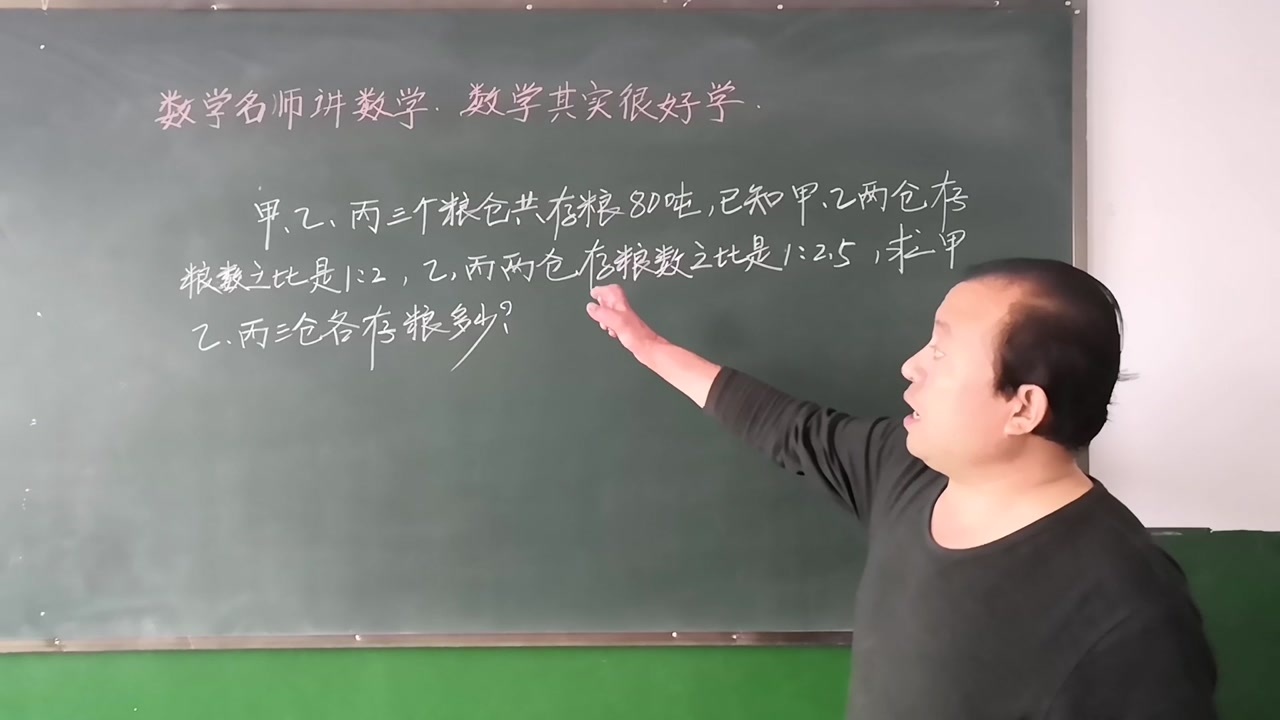 数学名师讲数学.数学其实很好学.
甲、乙、丙三个粮仓共存粮80吨,已知甲、乙两仓存
粮数之比是1:2,乙、丙两仓存粮数之比是1:2.5,求甲
乙、丙三仓各存粮多少?